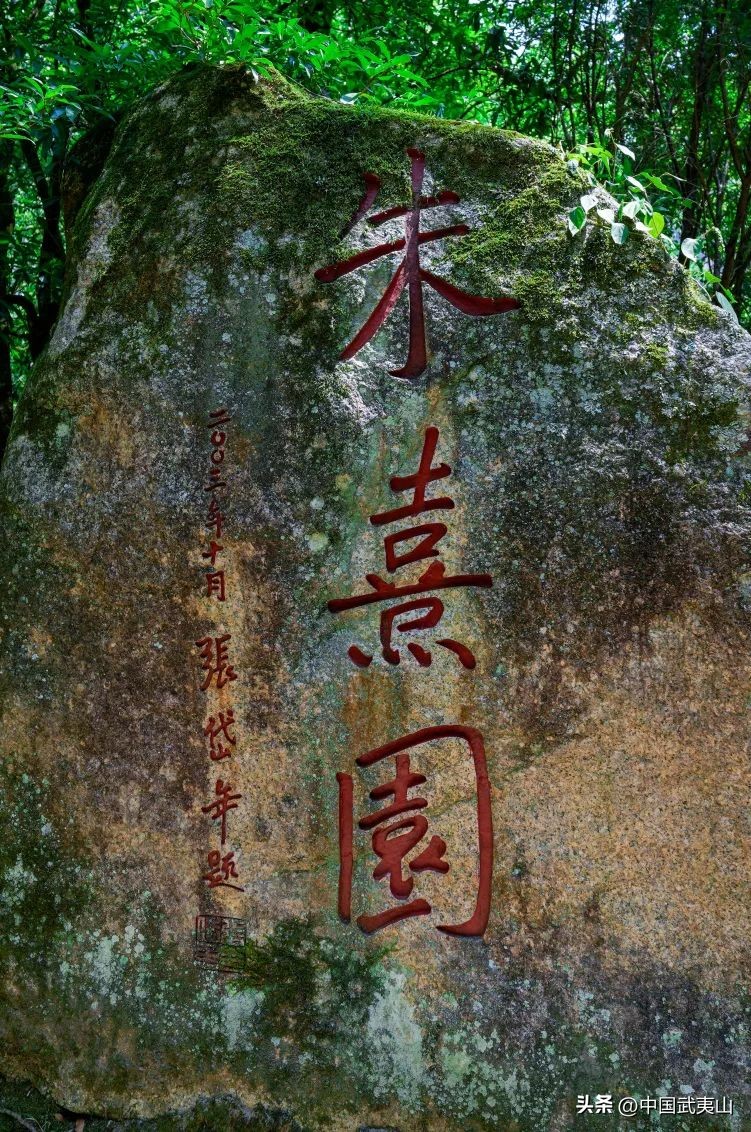 朱熹園
二〇〇三年十月 張岱年題
头条 @中国武夷山